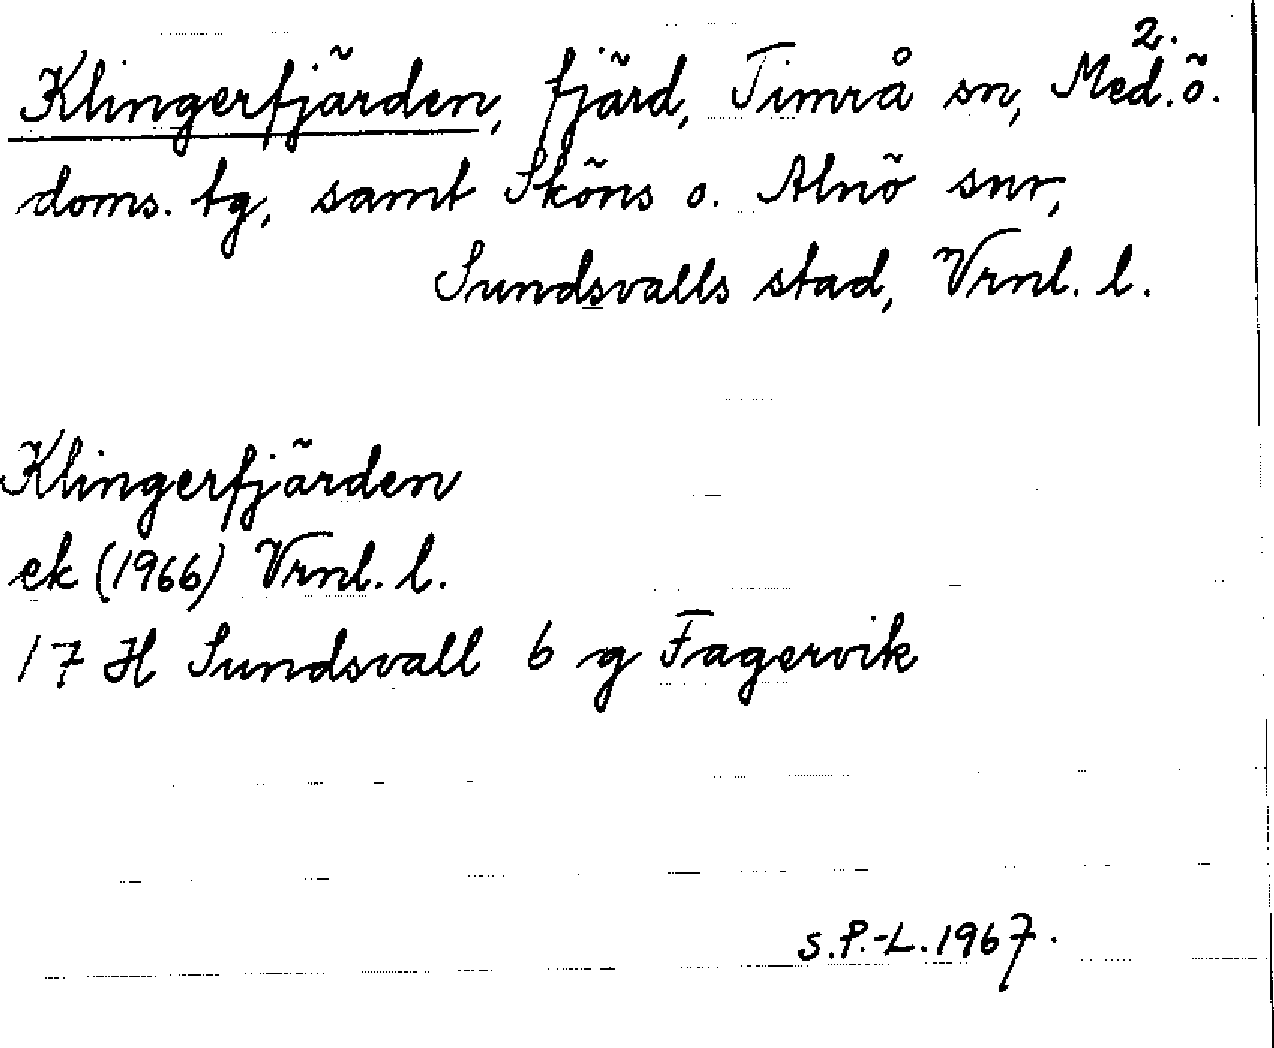 2.
Klingerfjärden, fjärd, Timrå sn, Med. ö.
doms. tg, samt Sköns o. Alnö snr,
Sundsvalls stad, Vrnl. l.
Klingerfjärden
ek (1966) Vrnl. l.
17 H Sundsvall 6 g Fagervik
S.P.-L. 1967.